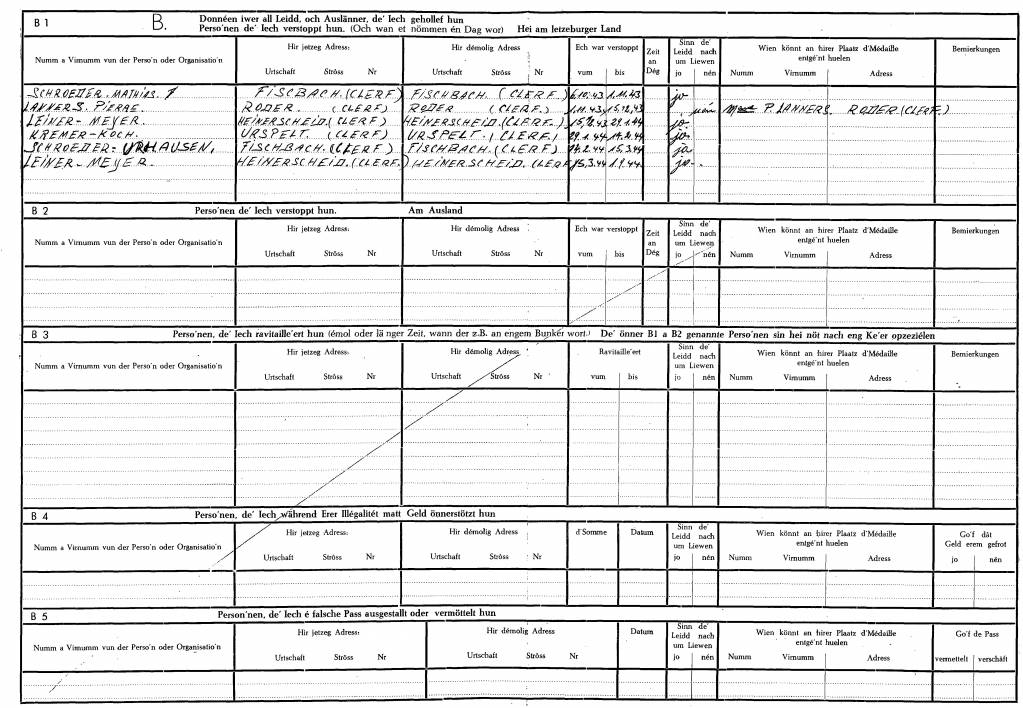 B 1 B. Donnéen iwer all Leidd, och Auslänner, de' Iech gehollef hun
Perso'nen de' Iech verstoppt hun. (Och wan et nömmen én Dag wor) Hei am letzeburger Land
Numm a Virnumm vun der Perso'n oder Organisatio'n Hir jetzeg Adress: Hir démolig Adress Ech war verstoppt Zeit an Dég Sinn de' Leidd nach um Liewen Wien könnt an hirer Plaatz d'Médaille entgé'nt huelen Bemierkungen
Urtschaft Ströss Nr Urtschaft Ströss Nr vum bis jo nén Numm Virnumm Adress
SCHROEDER. MATHIAS. FISCHBACH. (CLERF) FISCHBACH. (CLERF.) 6.10.43 1.11.43 jo
LANNERS. PIERRE. RODER. (CLERF.) RODER (CLERF.) 1.11.43 15.12.43 nén P. LANNERS. RODER (CLERF.)
LEINER- MEYER. HEINERSCHEID. (CLERF) HEINERSCHEID. (CLERF.) 15.12.43 29.1.44 jo.
KREMER-KOCH. URSPELT. (CLERF) URSPELT. (CLERF.) 29.1.44 14.2.44 jo.
SCHROEDER- URHAUSEN. FISCHBACH. (CLERF) FISCHBACH. (CLERF) 14.2.44 15.3.44 jo
LEINER-MEYER. HEINERSCHEID. (CLERF.) HEINERSCHEID. (CLERF 15.3.44 1.9.44 jo.
B 2 Perso'nen de' Iech verstoppt hun. Am Ausland
Numm a Virnumm vun der Perso'n oder Organisatio'n Hir jetzeg Adress: Hir démolig Adress Ech war verstoppt Zeit an Dég Sinn de' Leidd nach um Liewen Wien könnt an hirer Plaatz d'Médaille entgé'nt huelen Bemierkungen
Urtschaft Ströss Nr Urtschaft Ströss Nr vum bis jo nén Numm Virnumm Adress
B 3 Perso'nen, de' Iech ravitaille'ert hun (émol oder länger Zeit, wann der z.B. an engem Bunkér wort.) De' önner B1 a B2 genannte Perso'nen sin hei nöt nach eng Ke'er opzeziélen
Numm a Virnumm vun der Perso'n oder Organisatio'n Hir jetzeg Adress: Hir démolig Adress Ravitaille'ert Sinn de' Leidd nach um Liewen Wien könnt an hirer Plaatz d'Médaille entgé'nt huelen Bemierkungen
Urtschaft Ströss Nr Urtschaft Ströss Nr vum bis jo nén Numm Virnumm Adress
B 4 Perso'nen, de' Iech während Erer Illégalitét matt Geld önnerstötzt hun
Numm a Virnumm vun der Perso'n oder Organisatio'n Hir jetzeg Adress: Hir démolig Adress d'Somme Datum Sinn de' Leidd nach um Liewen Wien könnt an hirer Plaatz d'Médaille entgé'nt huelen Go'f dât Geld erem gefrot
Urtschaft Ströss Nr Urtschaft Ströss Nr jo nén Numm Virnumm Adress jo nén
B 5 Person'nen, de' Iech é falsche Pass ausgestallt oder vermöttelt hun
Numm a Virnumm vun der Perso'n oder Organisatio'n Hir jetzeg Adress: Hir démolig Adress Datum Sinn de' Leidd nach um Liewen Wien könnt an hirer Plaatz d'Médaille entgé'nt huelen Go'f de Pass
Urtschaft Ströss Nr Urtschaft Ströss Nr jo nén Numm Virnumm Adress vermettelt verschâft